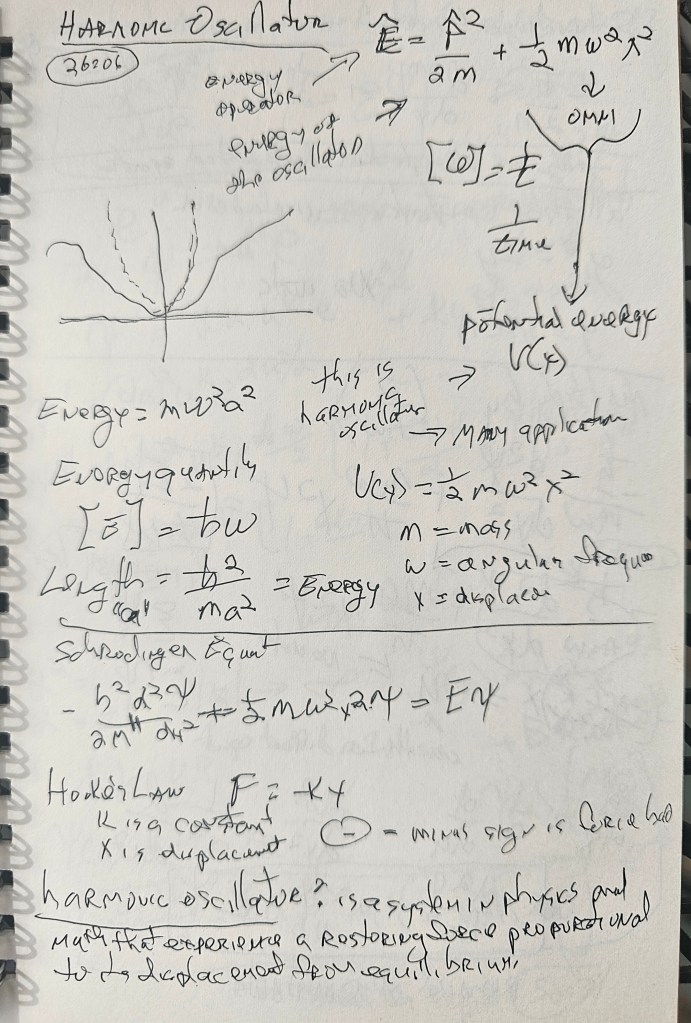 HARMONIC Oscillator
26:06
Ê = P̂²/2m + ½ mω²x²
energy operator
energy of the oscillator
[ω] = 1/t
1/time
potential energy
V(x)
this is harmonic oscillator
→ MANY application
Energy = mω²a²
Energy quantity
[E] = ħω
V(x) = ½ mω²x²
m = mass
ω = angular frequen
x = displacem
Length "a" = ħ²/ma² = Energy
Schrodinger Equat
- ħ²/2m d²Ψ/dx² + ½ mω²x²Ψ = EΨ
Hooke's Law F = -Kx
K is a constant
X is displacement
(-) = minus sign is force
harmonic oscillator? is a system in physics and
Math that experience a Restoring force proportional
to its displacement from equilibrium.